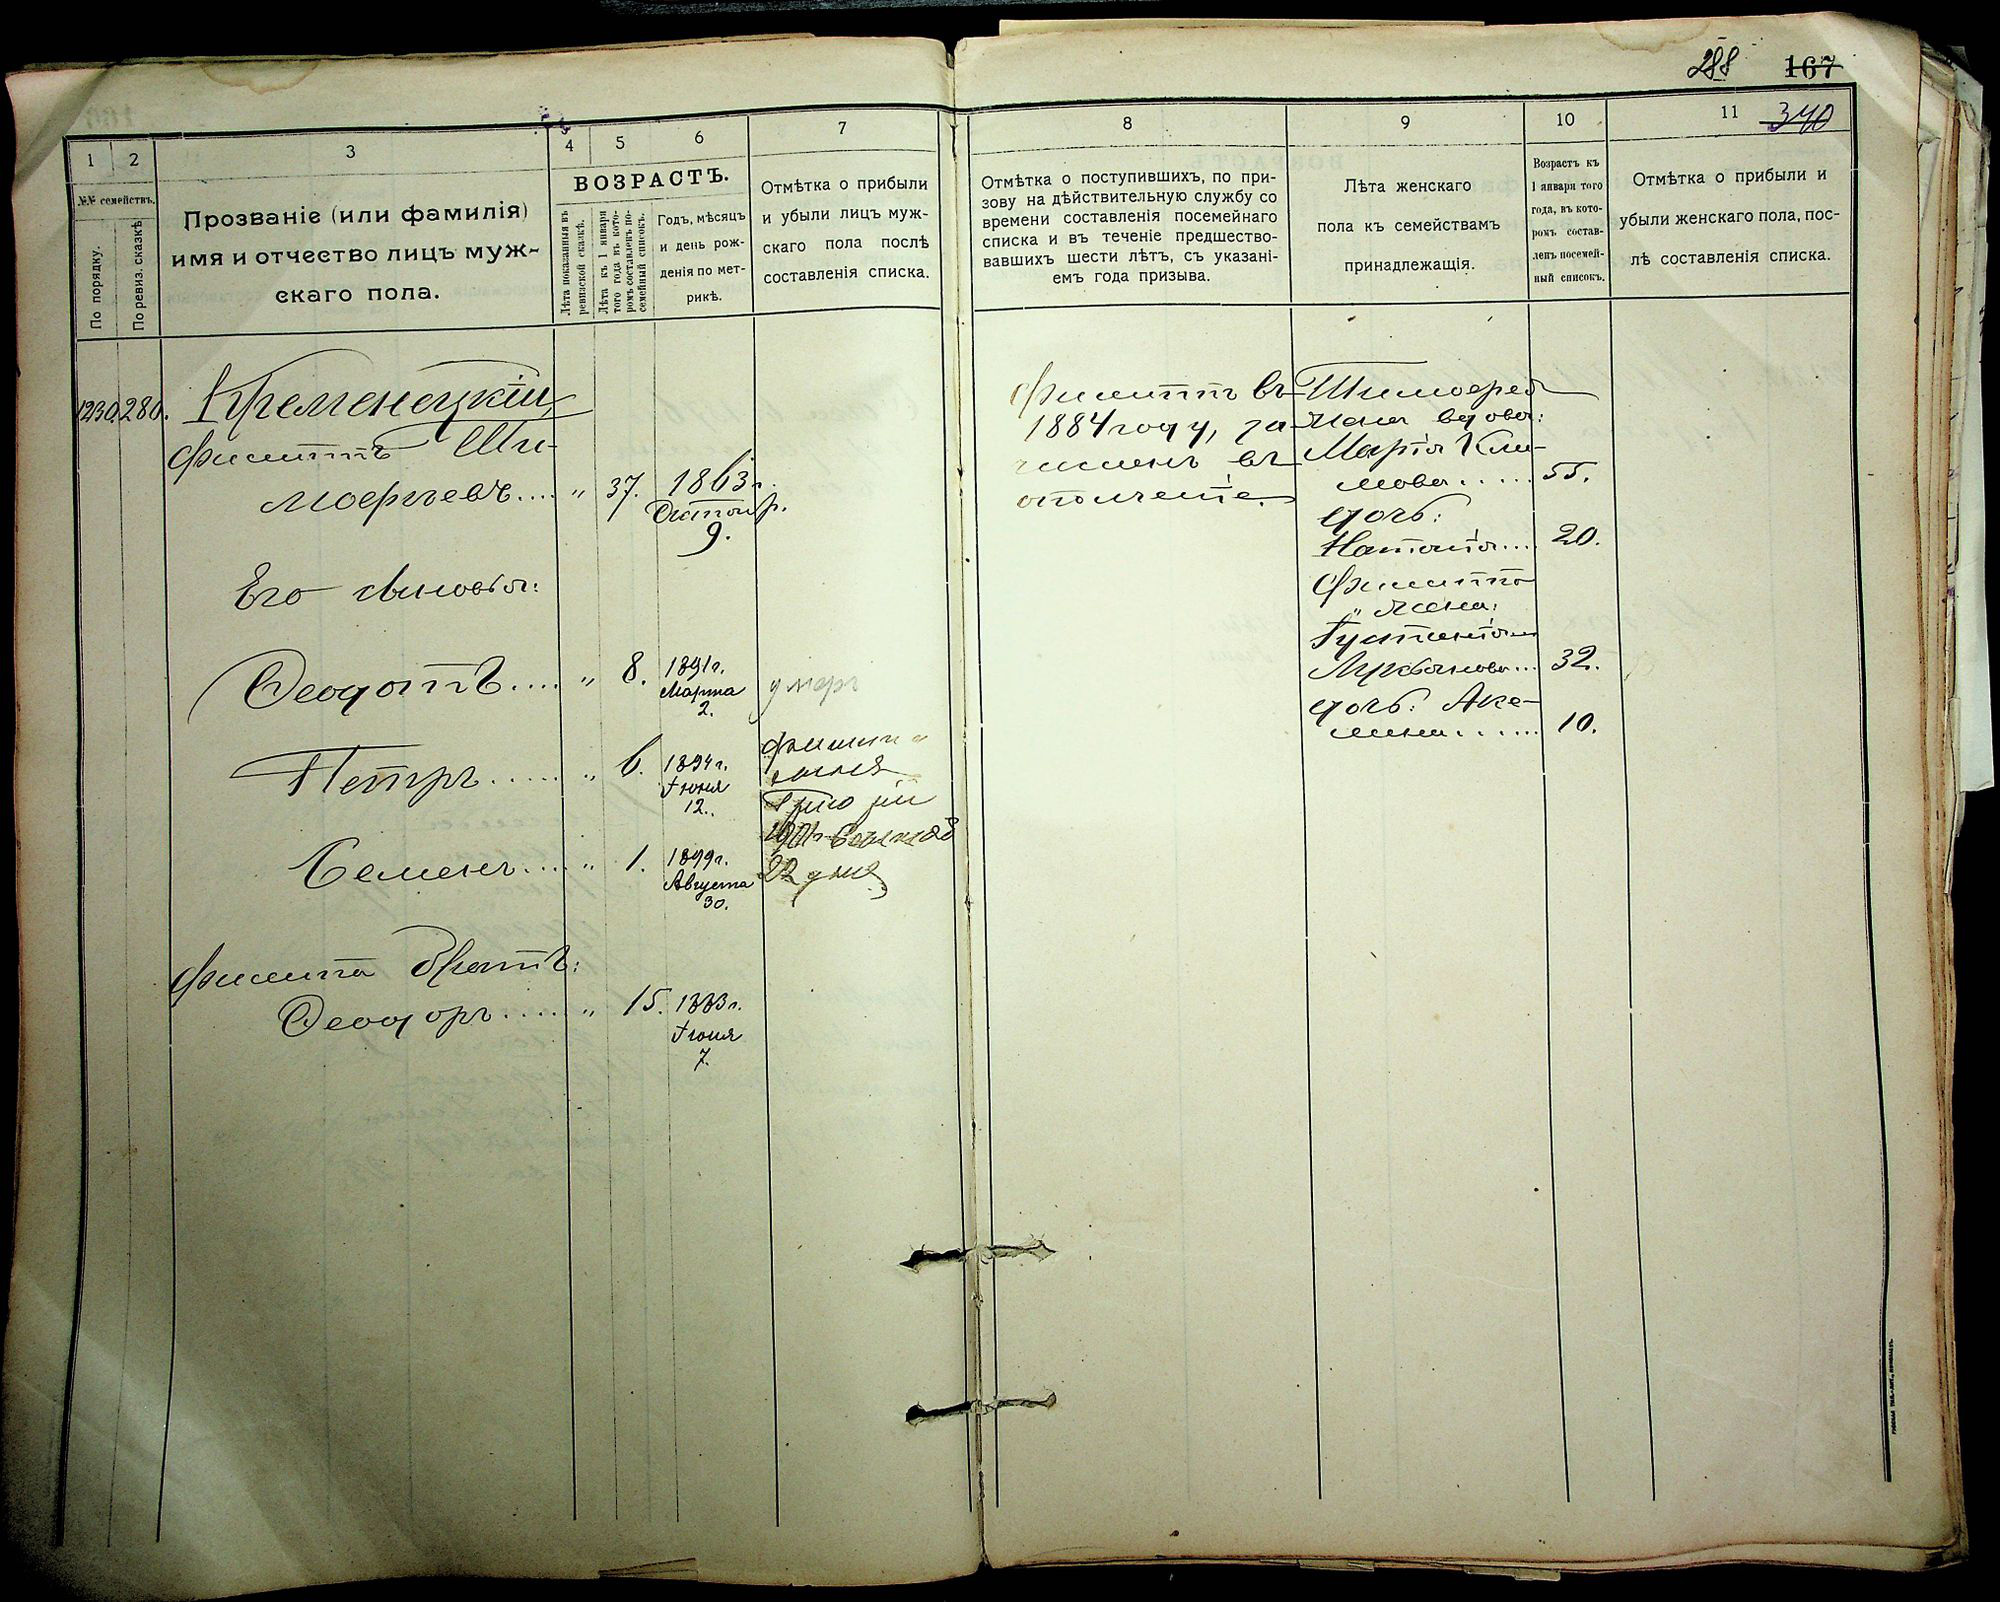 288 167
340
1
2
3
4
5
6
7
№№ семействъ.
По порядку.
По ревиз. сказкѣ
Прозваніе (или фамилія)
имя и отчество лицъ муж-
скаго пола.
ВОЗРАСТЪ.
Лѣта показанныя въ
ревизской сказкѣ.
Лѣта къ 1 января
того года въ кото-
ромъ составленъ по-
семейный списокъ.
Годъ, мѣсяцъ
и день рож-
денія по мет-
рикѣ.
Отмѣтка о прибыли
и убыли лицъ муж-
скаго пола послѣ
составленія списка.
1230. 280. Кременецкій
Филиппъ Ти-
мофѣевъ.... " 37. 1863 г.
Октябр.
9.
Его сыновья:
Ѳеодотъ.... " 8. 1891 г. умеръ
Марта
2.
Петръ..... " 6. 1894 г.
Іюня
12.
Семенъ.... " 1. 1899 г.
Августа
30.
Филиппа
сынъ
Григорій
22 дня
Филиппа братъ:
Ѳеодоръ..... " 15. 1883 г.
Іюня
7.
8
9
10
11
Отмѣтка о поступившихъ, по при-
зову на дѣйствительную службу со
времени составленія посемейнаго
списка и въ теченіе предшество-
вавшихъ шести лѣтъ, съ указані-
емъ года призыва.
Лѣта женскаго
пола къ семействамъ
принадлежащія.
Возрастъ къ
1 января того
года, въ кото-
ромъ состав-
ленъ посемей-
ный списокъ.
Отмѣтка о прибыли и
убыли женскаго пола, пос-
лѣ составленія списка.
Филиппъ въ
1884 году, за-
численъ въ
ополченіе.
Тимофея
жена вдова:
Марія Кли-
мова..... 55.
дочь:
Наталія.... 20.
Филиппа
" жена:
Іустинія
Лукьянова... 32.
дочь: Аки-
лина...... 10.